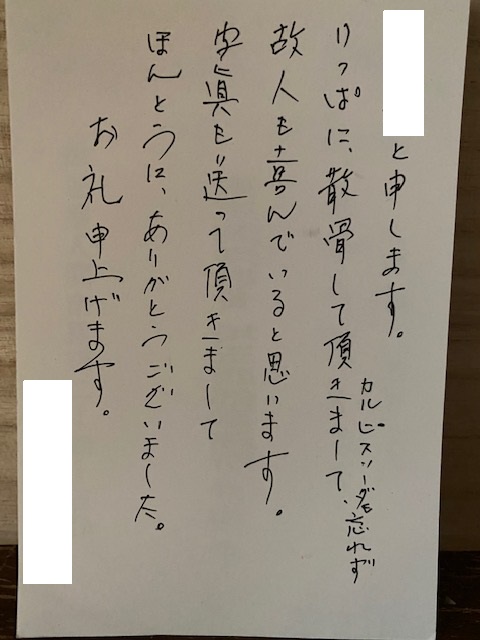 と申します。
りっぱに、散骨して頂きまして、カルピスソーダも忘れず
故人も喜んでいると思います。
写眞も送って頂きまして
ほんとうに、ありがとうございました。
お礼申上げます。